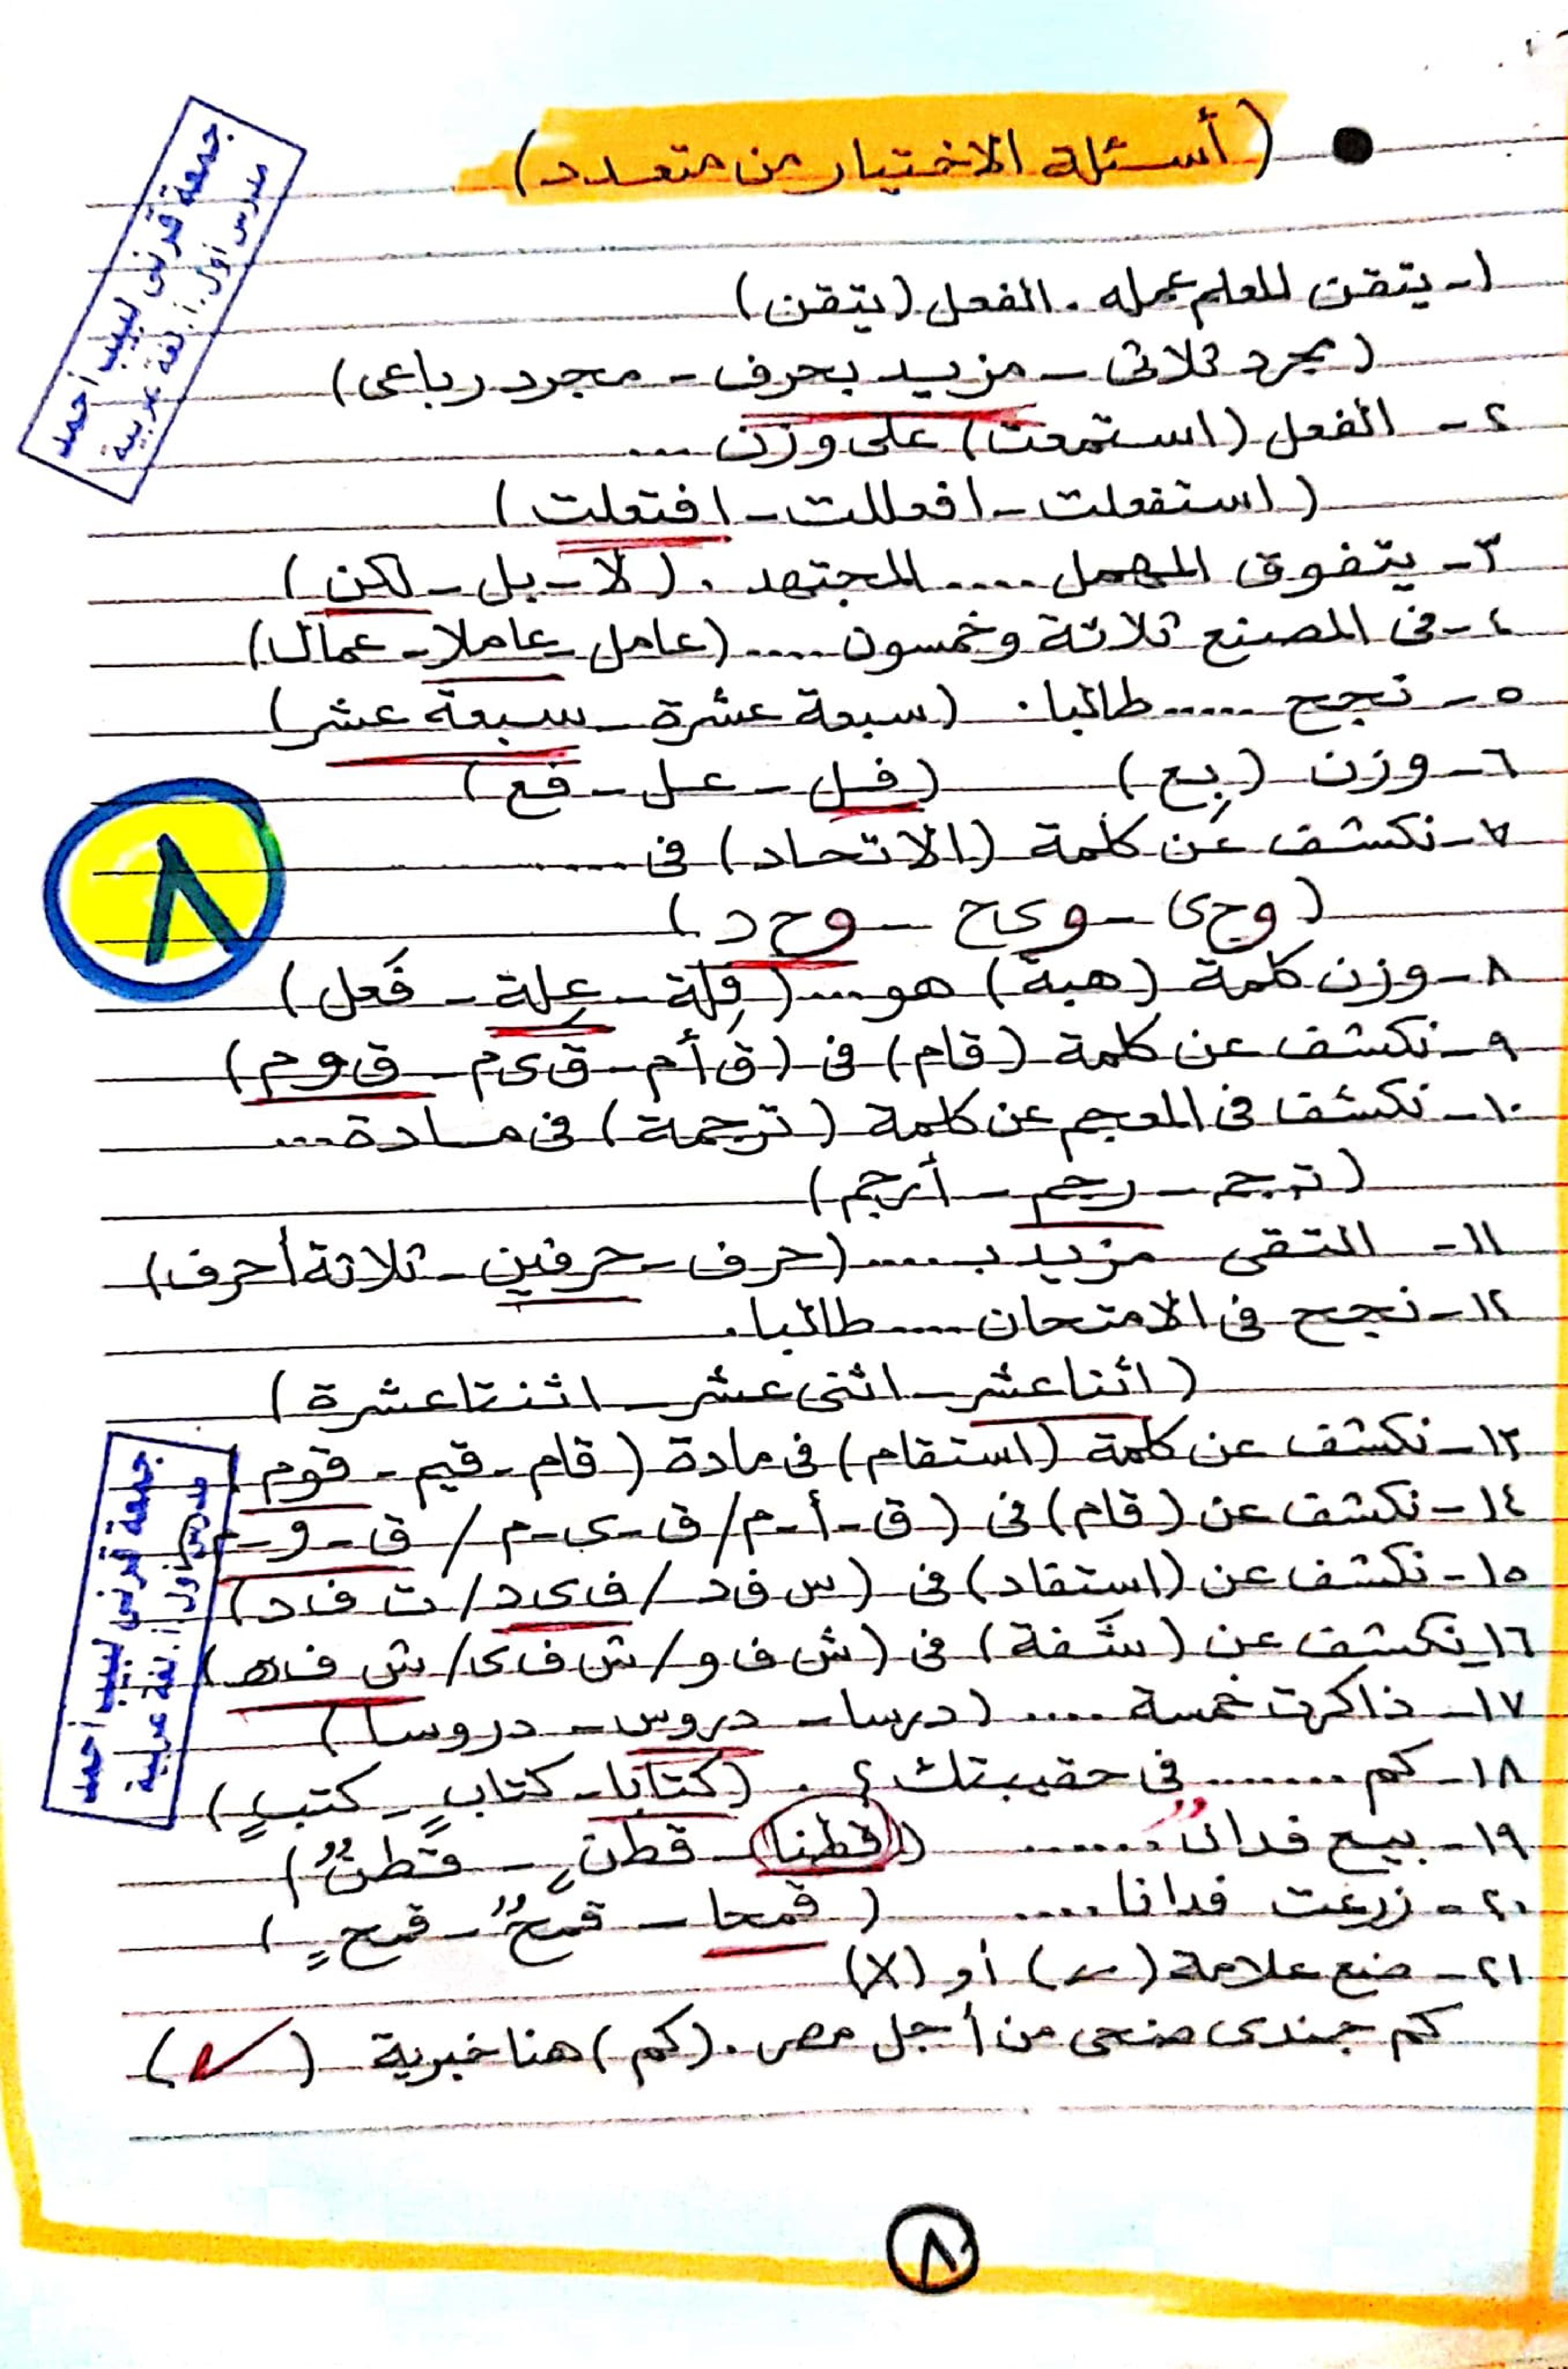 (أسئلة الاختيار من متعدد)
جمعة قرنى لبيب أحمد
مدرس أول أ. لغة عربية
١- يتقن المعلم عمله. الفعل (يتقن)
(مجرد ثلاثى - مزيد بحرف - مجرد رباعى)
٢- الفعل (استمعت) على وزن ...
(استفعلت - افعللت - افتعلت)
٣- يتفوق المهمل .... المجتهد. (لا - بل - لكن)
٤- فى المصنع ثلاثة وخمسون .... (عامل - عاملا - عمال)
٥- نجح ..... طالبا. (سبعة عشرة - سبعة عشر)
٦- وزن (بِع) (فل - عل - فع)
٧- نكشف عن كلمة (الاتحاد) فى ........
(وحى - وى ح - وح د)
٨- وزن كلمة (هبة) هو.... (فِلة - عِلة - فَعل)
٩- نكشف عن كلمة (قام) فى (ق أ م - ق ى م - ق و م)
١٠- نكشف فى المعجم عن كلمة (ترجمة) فى مادة...
(ترجم - رجم - أرجم)
١١- التقى مزيد بـ ..... (حرف - حرفين - ثلاثة أحرف)
١٢- نجح فى الامتحان .... طالبا.
(اثنا عشر - اثنى عشر - اثنتا عشرة)
١٣- نكشف عن كلمة (استقام) فى مادة (قام - قيم - قوم)
١٤- نكشف عن (قام) فى (ق - أ - م / ق - ى - م / ق - و - م)
١٥- نكشف عن (استفاد) فى (س ف د / ف ى د / ت ف ا د)
١٦- نكشف عن (شَفة) فى (ش ف و / ش ف ى / ش ف ه)
١٧- ذاكرت خمسة .... (درسا - دروس - دروسا)
١٨- كم ....... فى حقيبتك؟. (كتابا - كتابٍ - كتبٍ)
١٩- بيع فدانٌ ...... (قطنا - قطنٍ - قطنٌ)
٢٠- زرعت فدانا .... (قمحا - قمحٌ - قمحٍ)
٢١- ضع علامة (✓) أو (X)
كم جندى ضحى من أجل مصر. (كم) هنا خبرية (✓)
٨
جمعة قرنى لبيب أحمد
مدرس أول أ. لغة عربية
٨